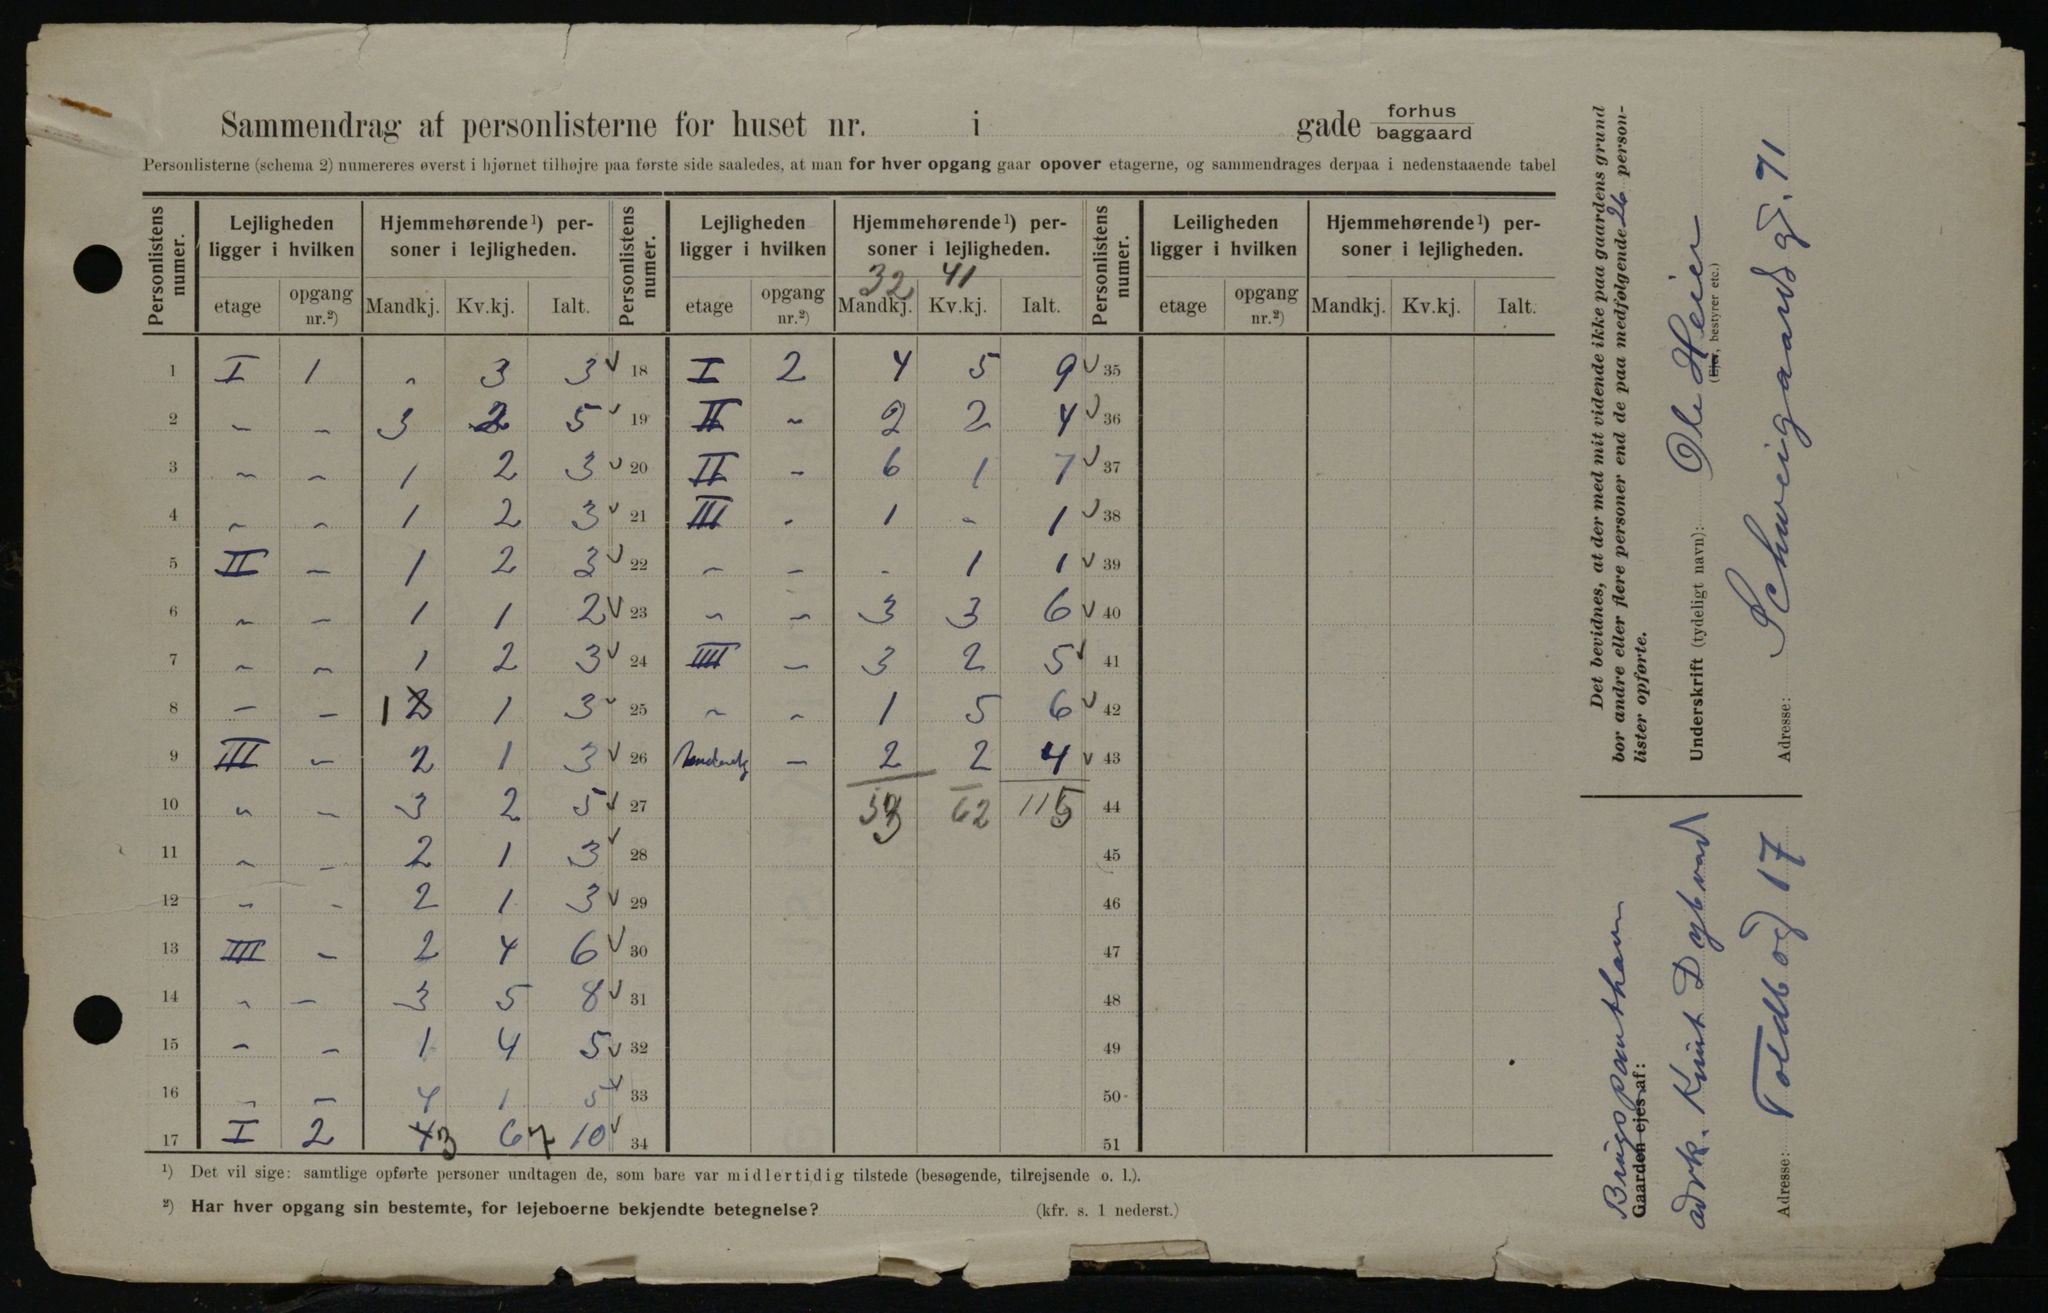 Sammendrag af personlisterne for huset nr. i gade forhus baggaard
Personlisterne (schema 2) numereres øverst i hjørnet tilhøjre paa første side saaledes, at man for hver opgang gaar opover etagerne, og sammendrages derpaa i nedenstaaende tabel
Personlistens numer. Lejligheden ligger i hvilken Hjemmehørende ¹) personer i lejligheden. Personlistens numer. Lejligheden ligger i hvilken Hjemmehørende ¹) personer i lejligheden. Personlistens numer. Leiligheden ligger i hvilken Hjemmehørende ¹) personer i lejligheden.
32 41
etage opgang nr.²) Mandkj. Kv.kj. Ialt. etage opgang nr.²) Mandkj. Kv.kj. Ialt. etage opgang nr.²) Mandkj. Kv.kj. Ialt.
1 I 1 „ 3 3 ✓ 18 I 2 4 5 9 ✓ 35
2 „ „ 3 2 5 ✓ 19 II „ 2 2 4 ✓ 36
3 „ „ 1 2 3 ✓ 20 II „ 6 1 7 ✓ 37
4 „ „ 1 2 3 ✓ 21 III „ 1 „ 1 ✓ 38
5 II „ 1 2 3 ✓ 22 „ „ „ 1 1 ✓ 39
6 „ „ 1 1 2 ✓ 23 „ „ 3 3 6 ✓ 40
7 „ „ 1 2 3 ✓ 24 IIII „ 3 2 5 ✓ 41
8 „ „ 1 2 1 3 ✓ 25 „ „ 1 5 6 ✓ 42
9 III „ 2 1 3 ✓ 26 „ 2 2 4 ✓ 43
10 „ „ 3 2 5 ✓ 27 53 62 115 44
11 „ „ 2 1 3 ✓ 28 45
12 „ „ 2 1 3 ✓ 29 46
13 IIII „ 2 4 6 ✓ 30 47
14 „ „ 3 5 8 ✓ 31 48
15 „ „ 1 4 5 ✓ 32 49
16 „ „ 4 1 5 ✓ 33 50
17 I 2 4 3 6 7 10 ✓ 34 51
¹) Det vil sige: samtlige opførte personer undtagen de, som bare var midlertidig tilstede (besøgende, tilrejsende o. l.).
²) Har hver opgang sin bestemte, for lejeboerne bekjendte betegnelse? (kfr. s. 1 nederst.)
Det bevidnes, at der med mit vidende ikke paa gaardens grund
bor andre eller flere personer end de paa medfølgende 26 person-
lister opførte.
Underskrift (tydeligt navn): Ole Heier
(Ejer, bestyrer etc.)
Adresse: Schweigaardsgd. 71
Gaarden ejes af:
adrk. Knut Dybwad
Adresse: Toldbodgd 17